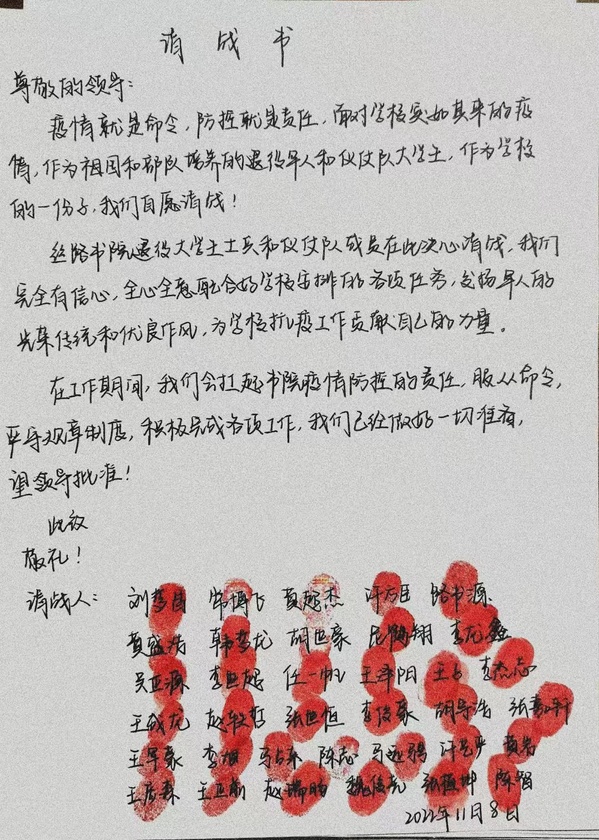 请战书
尊敬的领导:
疫情就是命令,防控就是责任,面对学校突如其来的疫
情,作为祖国和部队培养的退役军人和仪仗队大学生,作为学校
的一份子,我们自愿请战!
丝路书院退役大学生士兵和仪仗队成员在此决心请战,我们
完全有信心,全心全意配合好学校安排的各项任务,发扬军人的
光荣传统和优良作风,为学校抗疫工作贡献自己的力量。
在工作期间,我们会扛起书院疫情防控的责任,服从命令,
严守规章制度,积极完成各项工作,我们已经做好一切准备,
望领导批准!
此致
敬礼!
请战人: 刘梦国 常博飞
黄盛浩 韩梦龙 胡世豪 李龙鑫
吴亚源 李世旭 任一帆 王泽阳 李杰志
王成龙 张世恒 李俊豪 胡导浩
王军豪 李旭 马占东 陈志 马远骋
王彦森 王亚甫 赵瑞昀 魏俊尧 陈智
2022年11月8日